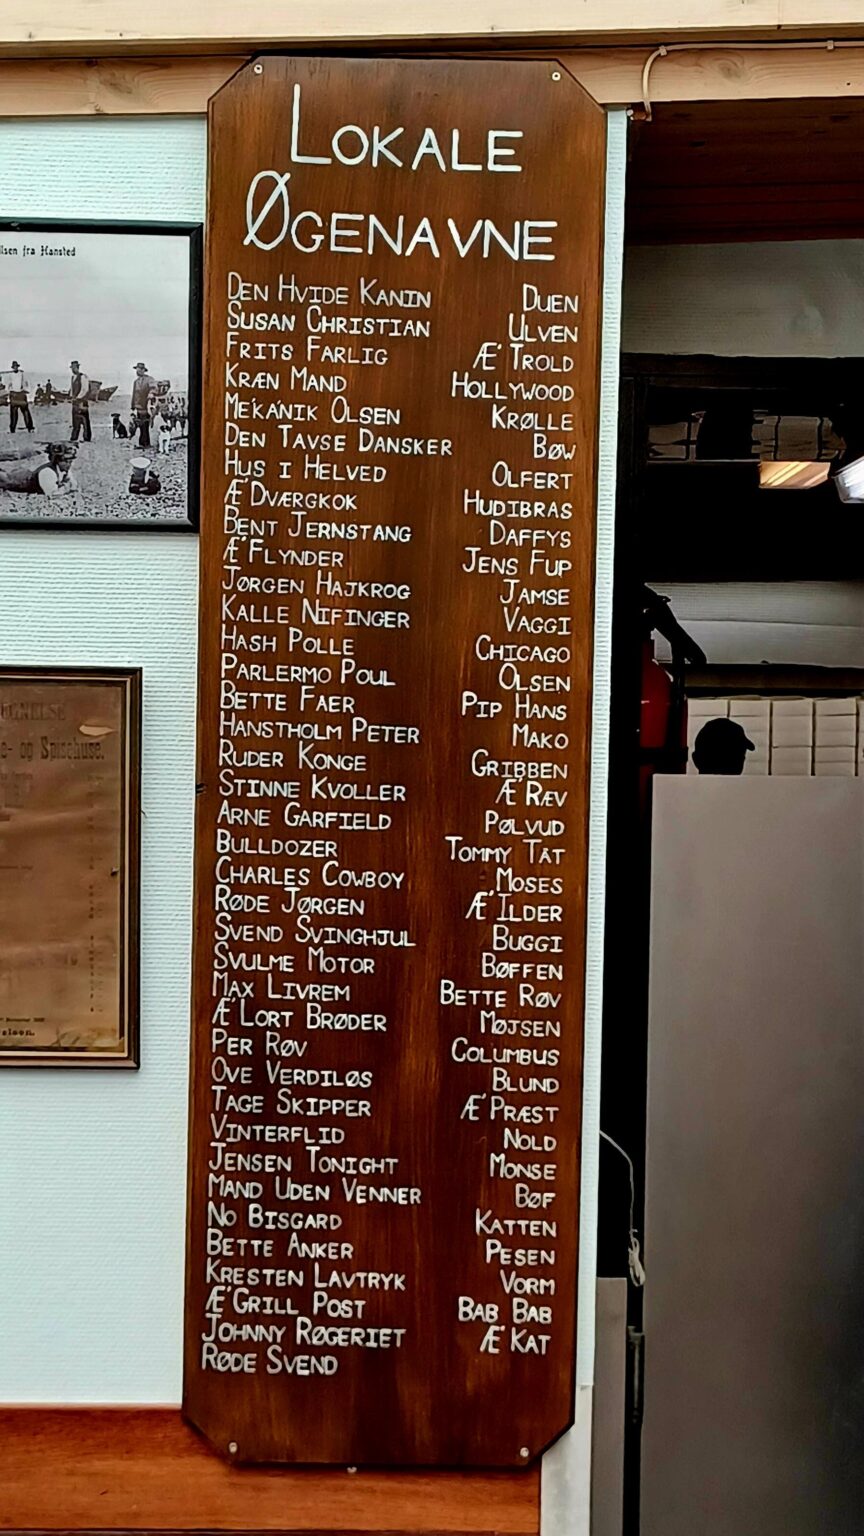 Lokale
Øgenavne
Den Hvide Kanin
Susan Christian
Frits Farlig
Kræn Mand
Mekanik Olsen
Den Tavse Dansker
Hus i Helved
Æ' Dværgkok
Bent Jernstang
Æ' Flynder
Jørgen Hajkrog
Kalle Nifinger
Hash Polle
Parlermo Poul
Bette Faer
Hanstholm Peter
Ruder Konge
Stinne Kvoller
Arne Garfield
Bulldozer
Charles Cowboy
Røde Jørgen
Svend Svinghjul
Svulme Motor
Max Livrem
Æ' Lort Brøder
Per Røv
Ove Verdiløs
Tage Skipper
Vinterflid
Jensen Tonight
Mand Uden Venner
No Bisgard
Bette Anker
Kresten Lavtryk
Æ' Grill Post
Johnny Røgeriet
Røde Svend
Duen
Ulven
Æ' Trold
Hollywood
Krølle
Bøw
Olfert
Hudibras
Daffys
Jens Fup
Jamse
Vaggi
Chicago
Olsen
Pip Hans
Mako
Gribben
Æ' Ræv
Pølvud
Tommy Tat
Moses
Æ' Ilder
Buggi
Bøffen
Bette Røv
Møjsen
Columbus
Blund
Æ' Præst
Nold
Monse
Bøf
Katten
Pesen
Vorm
Bab Bab
Æ' Kat
lsen fra Hansted
- og Spisehuse.